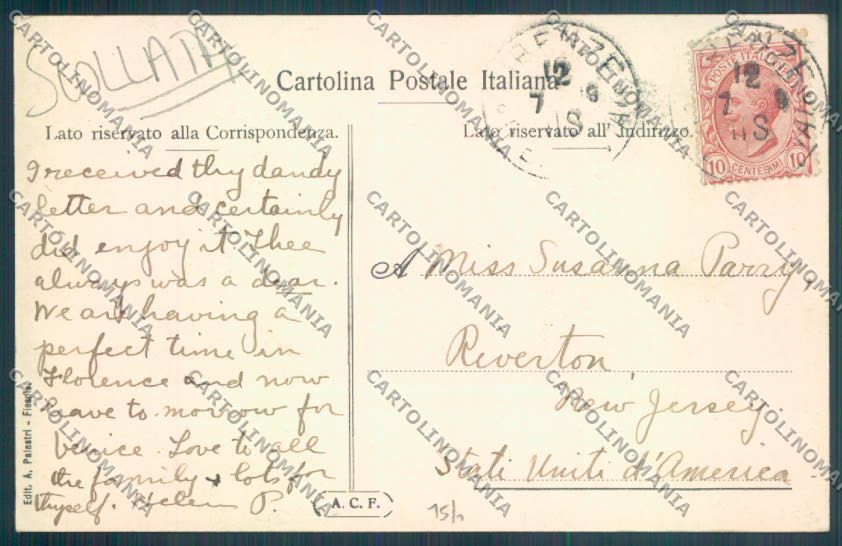 SCOLLATA
Cartolina Postale Italiana
Lato riservato alla Corrispondenza.
Lato riservato all' Indirizzo.
FIRENZE
12
7 9
1S
FIRENZE
12
7 9
11S
POSTE ITALIANE
10 CENTESIMI 10
I received thy dandy
letter and certainly
did enjoy it Thee
always was a dear.
We are having a
perfect time in
Florence and now
leave to-morrow for
Venice. Love to all
the family & lots for
thyself. Helen P.
A Miss Susanna Parry,
Riverton,
New Jersey
Stati Uniti d'America
Edit. A. Palastri - Fiesole
A. C. F.
15/1
CARTOLINOMANIA